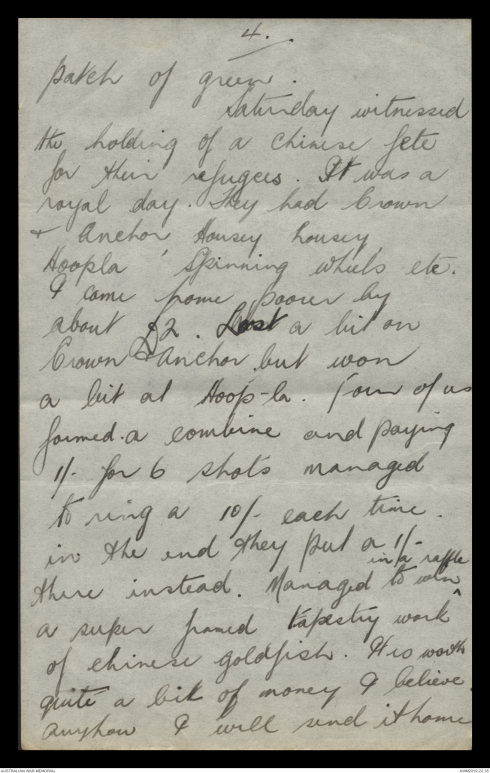 4.
patch of green.
Saturday witnessed
the holding of a chinese fete
for their refugees. It was a
royal day. They had Crown
+ Anchor Housey housey,
Hoopla, Spinning wheels etc.
I came home poorer by
about £2. Lost a bit on
Crown & Anchor but won
a bit at Hoop-la. Four of us
formed a combine and paying
1/- for 6 shots managed
to ring a 10/- each time.
in the end they put a 1/-
there instead. Managed to win in a raffle
a super framed tapestry work
of chinese goldfish. It is worth
quite a bit of money I believe.
Anyhow I will send it home
AUSTRALIAN WAR MEMORIAL